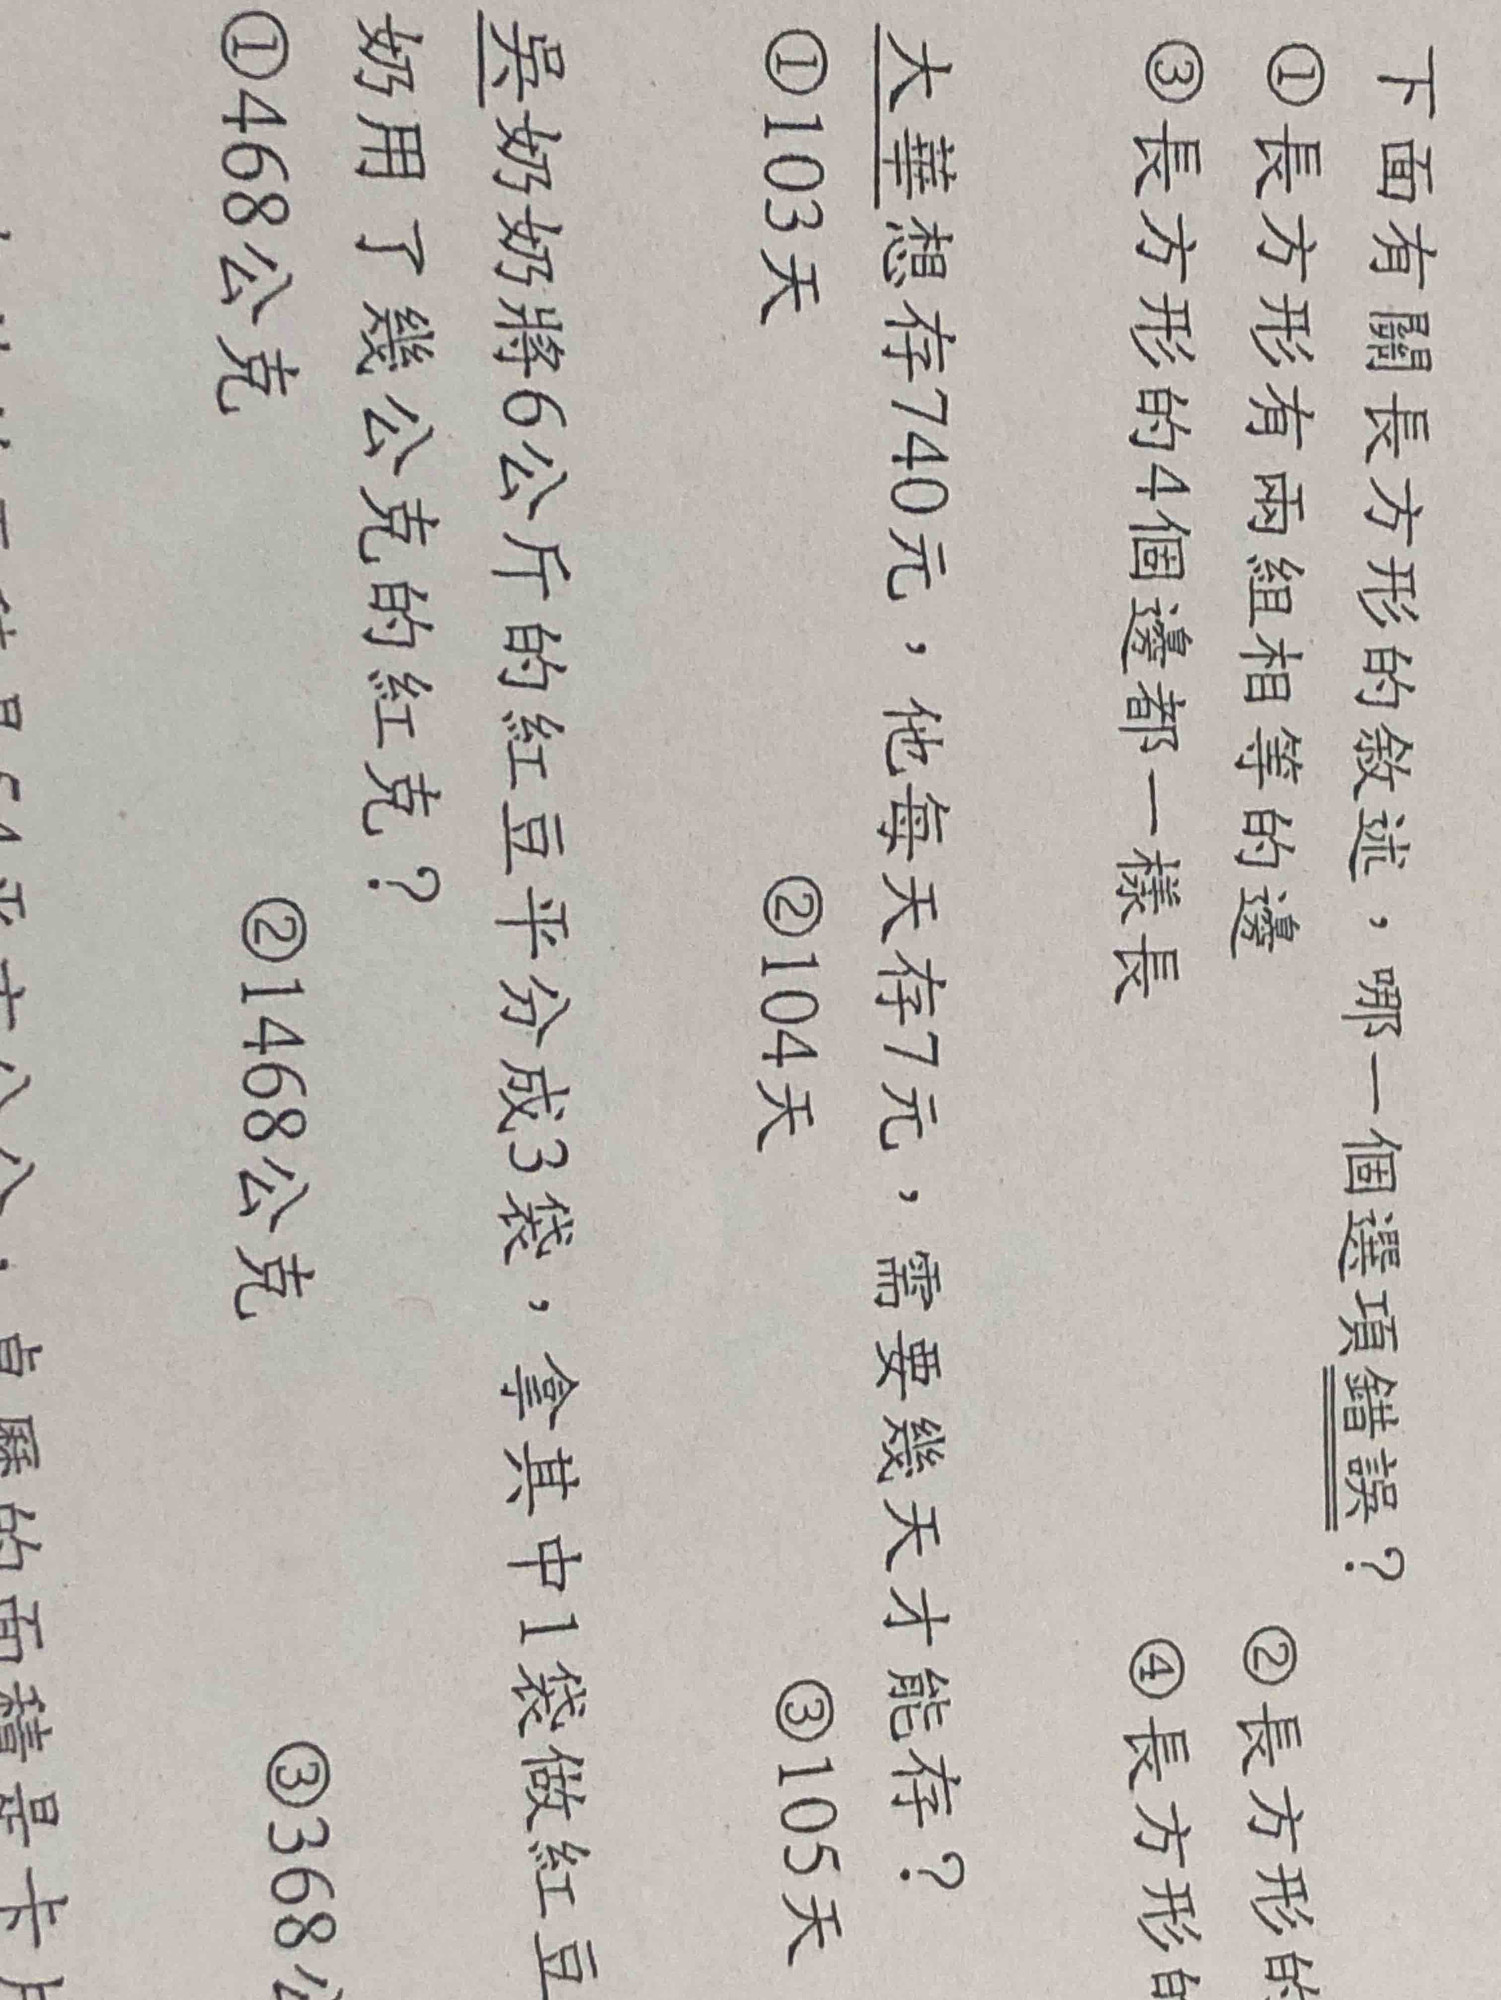 下面有關長方形的敘述，哪一個選項錯誤？
①長方形有兩組相等的邊 ②長方形的
③長方形的4個邊都一樣長 ④長方形的
大華想存740元，他每天存7元，需要幾天才能存？
①103天 ②104天 ③105天
吳奶奶將6公斤的紅豆平分成3袋，拿其中1袋做紅豆
奶用了幾公克的紅克？
①468公克 ②1468公克 ③368公